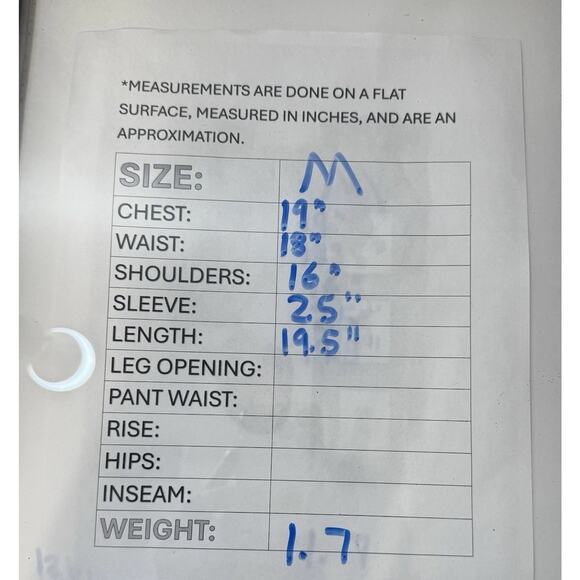 *MEASUREMENTS ARE DONE ON A FLAT
SURFACE, MEASURED IN INCHES, AND ARE AN
APPROXIMATION.
SIZE: M
CHEST: 19"
WAIST: 18"
SHOULDERS: 16"
SLEEVE: 25"
LENGTH: 19.5"
LEG OPENING:
PANT WAIST:
RISE:
HIPS:
INSEAM:
WEIGHT: 1.7